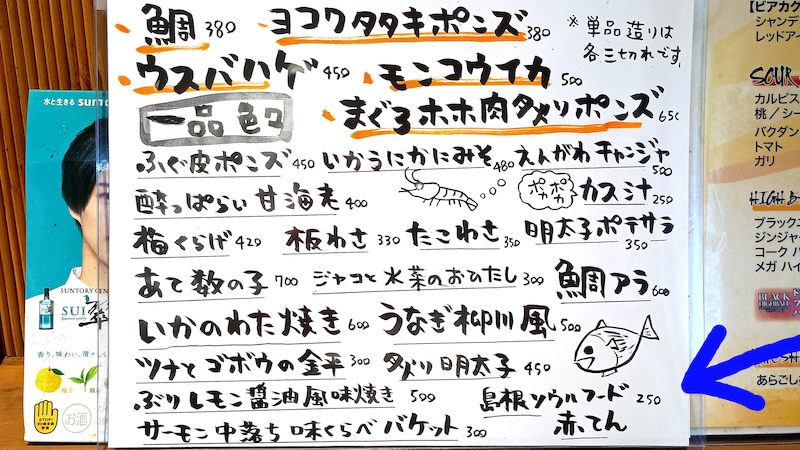 鯛 380 ヨコワタタキポンズ 380
※単品造りは
各三切れです。
ウスバハゲ 450 モンコウイカ 500
一品 まぐろホホ肉タタリポンズ 650
ふぐ皮ポンズ 450 いかうにかにみそ 480 えんがわチャンジャ 500
酔っぱらい甘海老 400 ポカポカ カス汁 250
梅くらげ 420 板わさ 330 たこわさ 350 明太子ポテサラ 350
あて数の子 700 ジャコと水菜のおひたし 300 鯛アラ 600
いかのわた焼き 600 うなぎ柳川風 500
ツナとゴボウの金平 300 炙り明太子 450
ぶりレモン醤油風味焼き 500 島根ソウルフード 250
赤てん
サーモン中落ち味くらべバケット 300
水と生きる SUNTO
SUNTORY GIN
SUI 翠
香り、味わい、清々しく
柚子 緑
STOP! お酒
【ビアカク
シャンデ
レッドアイ
SOUR
カルピス
桃／シー
バクダン
トマト
ガリ
HIGH B
ブラックニ
ジンジャー
コーク ハ
メガ ハイ
BLACK
HIGHBALL
あらごし